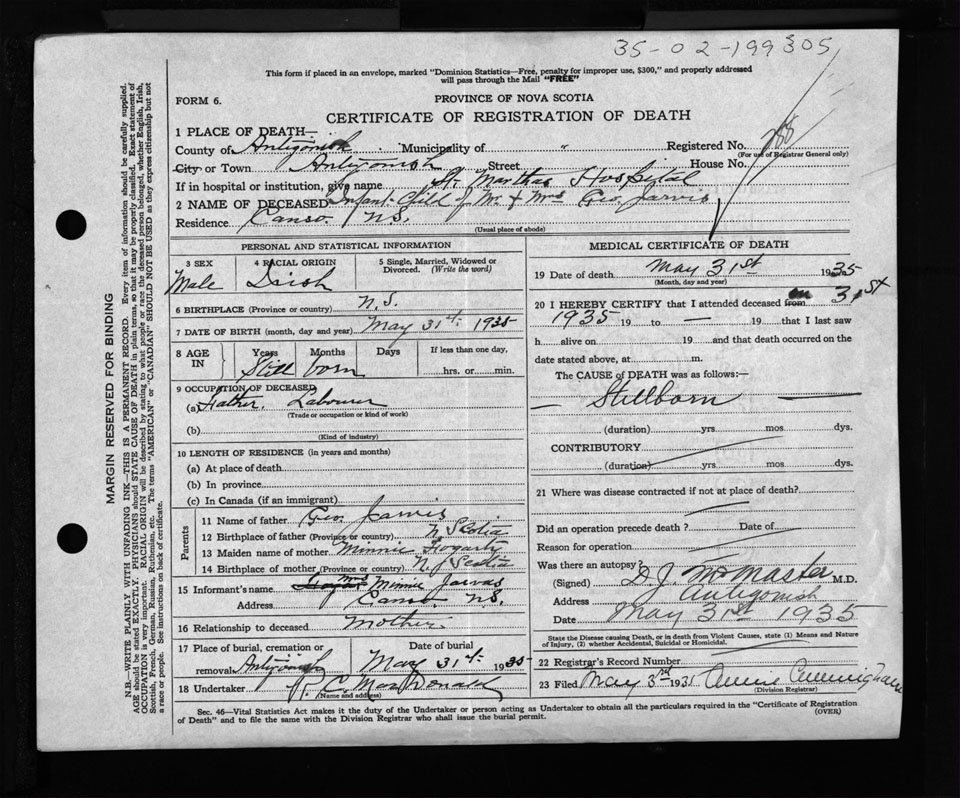 35-02-199305
This form if placed in an envelope, marked "Dominion Statistics—Free, penalty for improper use, $300," and properly addressed
will pass through the Mail "FREE"
FORM 6.
PROVINCE OF NOVA SCOTIA
CERTIFICATE OF REGISTRATION OF DEATH
1 PLACE OF DEATH—
County of Antigonish Municipality of " Registered No. 288
(For use of Registrar General only)
City or Town Antigonish Street House No.
If in hospital or institution, give name St. Marthas Hospital
2 NAME OF DECEASED Infant Child of Mr. & Mrs Geo. Jarvis
Residence Canso. N.S.
(Usual place of abode)
PERSONAL AND STATISTICAL INFORMATION
3 SEX 4 RACIAL ORIGIN 5 Single, Married, Widowed or
Divorced. (Write the word)
Male Irish
6 BIRTHPLACE (Province or country) N.S.
7 DATE OF BIRTH (month, day and year) May 31st. 1935
8 AGE IN Years Months Days If less than one day,
Still born hrs. or min.
9 OCCUPATION OF DECEASED
(a) Father. Labourer
(Trade or occupation or kind of work)
(b)
(Kind of industry)
10 LENGTH OF RESIDENCE (in years and months)
(a) At place of death
(b) In province
(c) In Canada (if an immigrant)
Parents
11 Name of father Geo. Jarvis
12 Birthplace of father (Province or country) N. Scotia
13 Maiden name of mother Minnie Fogarty
14 Birthplace of mother (Province or country) N. Scotia
15 Informant's name Mrs Minnie Jarvas
Address Canso. N.S.
16 Relationship to deceased Mother.
17 Place of burial, cremation or Date of burial
removal Antigonish May 31st. 1935
18 Undertaker P. C. MacDonald
(Name and address)
MEDICAL CERTIFICATE OF DEATH
19 Date of death May 31st 1935
(Month, day and year)
20 I HEREBY CERTIFY that I attended deceased from on 31st
1935 19 to — 19 that I last saw
h alive on 19 and that death occurred on the
date stated above, at m.
The CAUSE of DEATH was as follows:—
— Stillborn —
(duration) yrs mos dys.
CONTRIBUTORY
(duration) yrs mos dys.
21 Where was disease contracted if not at place of death?
Did an operation precede death? Date of
Reason for operation
Was there an autopsy?
(Signed) D J. McMaster M.D.
Address Antigonish
Date May 31st 1935
State the Disease causing Death, or in death from Violent Causes, state (1) Means and Nature
of Injury, (2) whether Accidental, Suicidal or Homicidal.
22 Registrar's Record Number
23 Filed May 3rd 1931 Annie Cunningham
(Division Registrar)
Sec. 46—Vital Statistics Act makes it the duty of the Undertaker or person acting as Undertaker to obtain all the particulars required in the "Certificate of Registration
of Death" and to file the same with the Division Registrar who shall issue the burial permit.
(OVER)
MARGIN RESERVED FOR BINDING
N.B.—WRITE PLAINLY WITH UNFADING INK—THIS IS A PERMANENT RECORD. Every item of information should be carefully supplied.
AGE should be stated EXACTLY. PHYSICIANS should STATE CAUSE OF DEATH in plain terms, so that it may be properly classified. Exact statement of
OCCUPATION is very important. RACIAL ORIGIN will be described by stating to what people or race the deceased person belonged, whether English, Irish,
Scottish, French, German, Russian, Ruthenian, etc. The terms "AMERICAN" or "CANADIAN" SHOULD NOT BE USED as they express citizenship but not
a race or people. See instructions on back of certificate.